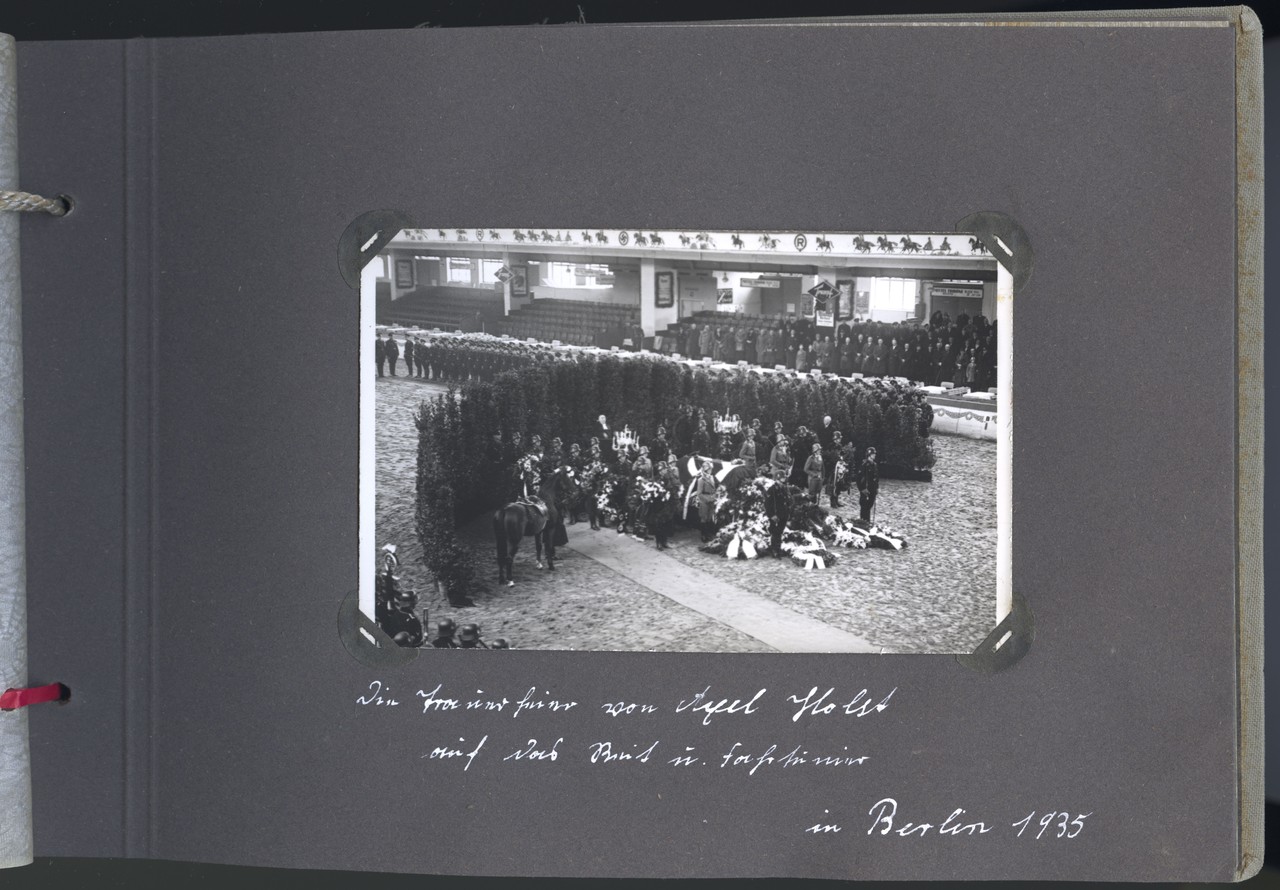 R
Die Trauerfeier von Axel Holst
auf das Reit u. Fahrturnier
in Berlin 1935